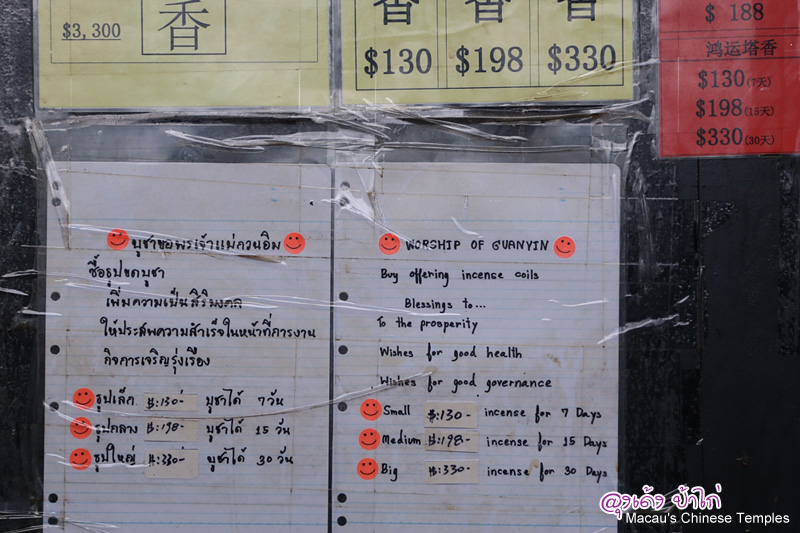 $3,300
香
香 香 香
$130 $198 $330
$ 188
鸿运塔香
$130(7天)
$198(15天)
$330(30天)
บูชาขอพรเจ้าแม่กวนอิม
ซื้อธูปขดบูชา
เพิ่มความเป็นสิริมงคล
ให้ประสพความสำเร็จในหน้าที่การงาน
กิจการเจริญรุ่งเรือง
ธูปเล็ก $:130- บูชาได้ 7วัน
ธูปกลาง $:198- บูชาได้ 15 วัน
ธูปใหญ่ $:330- บูชาได้ 30 วัน
WORSHIP OF GUANYIN
Buy offering incense coils
Blessings to...
To the prosperity
Wishes for good health
Wishes for good governance
Small $:130- incense for 7 Days
Medium $:198- incense for 15 Days
Big $:330- incense for 30 Days
ลุงเด้ง ป้าไก่
Macau's Chinese Temples